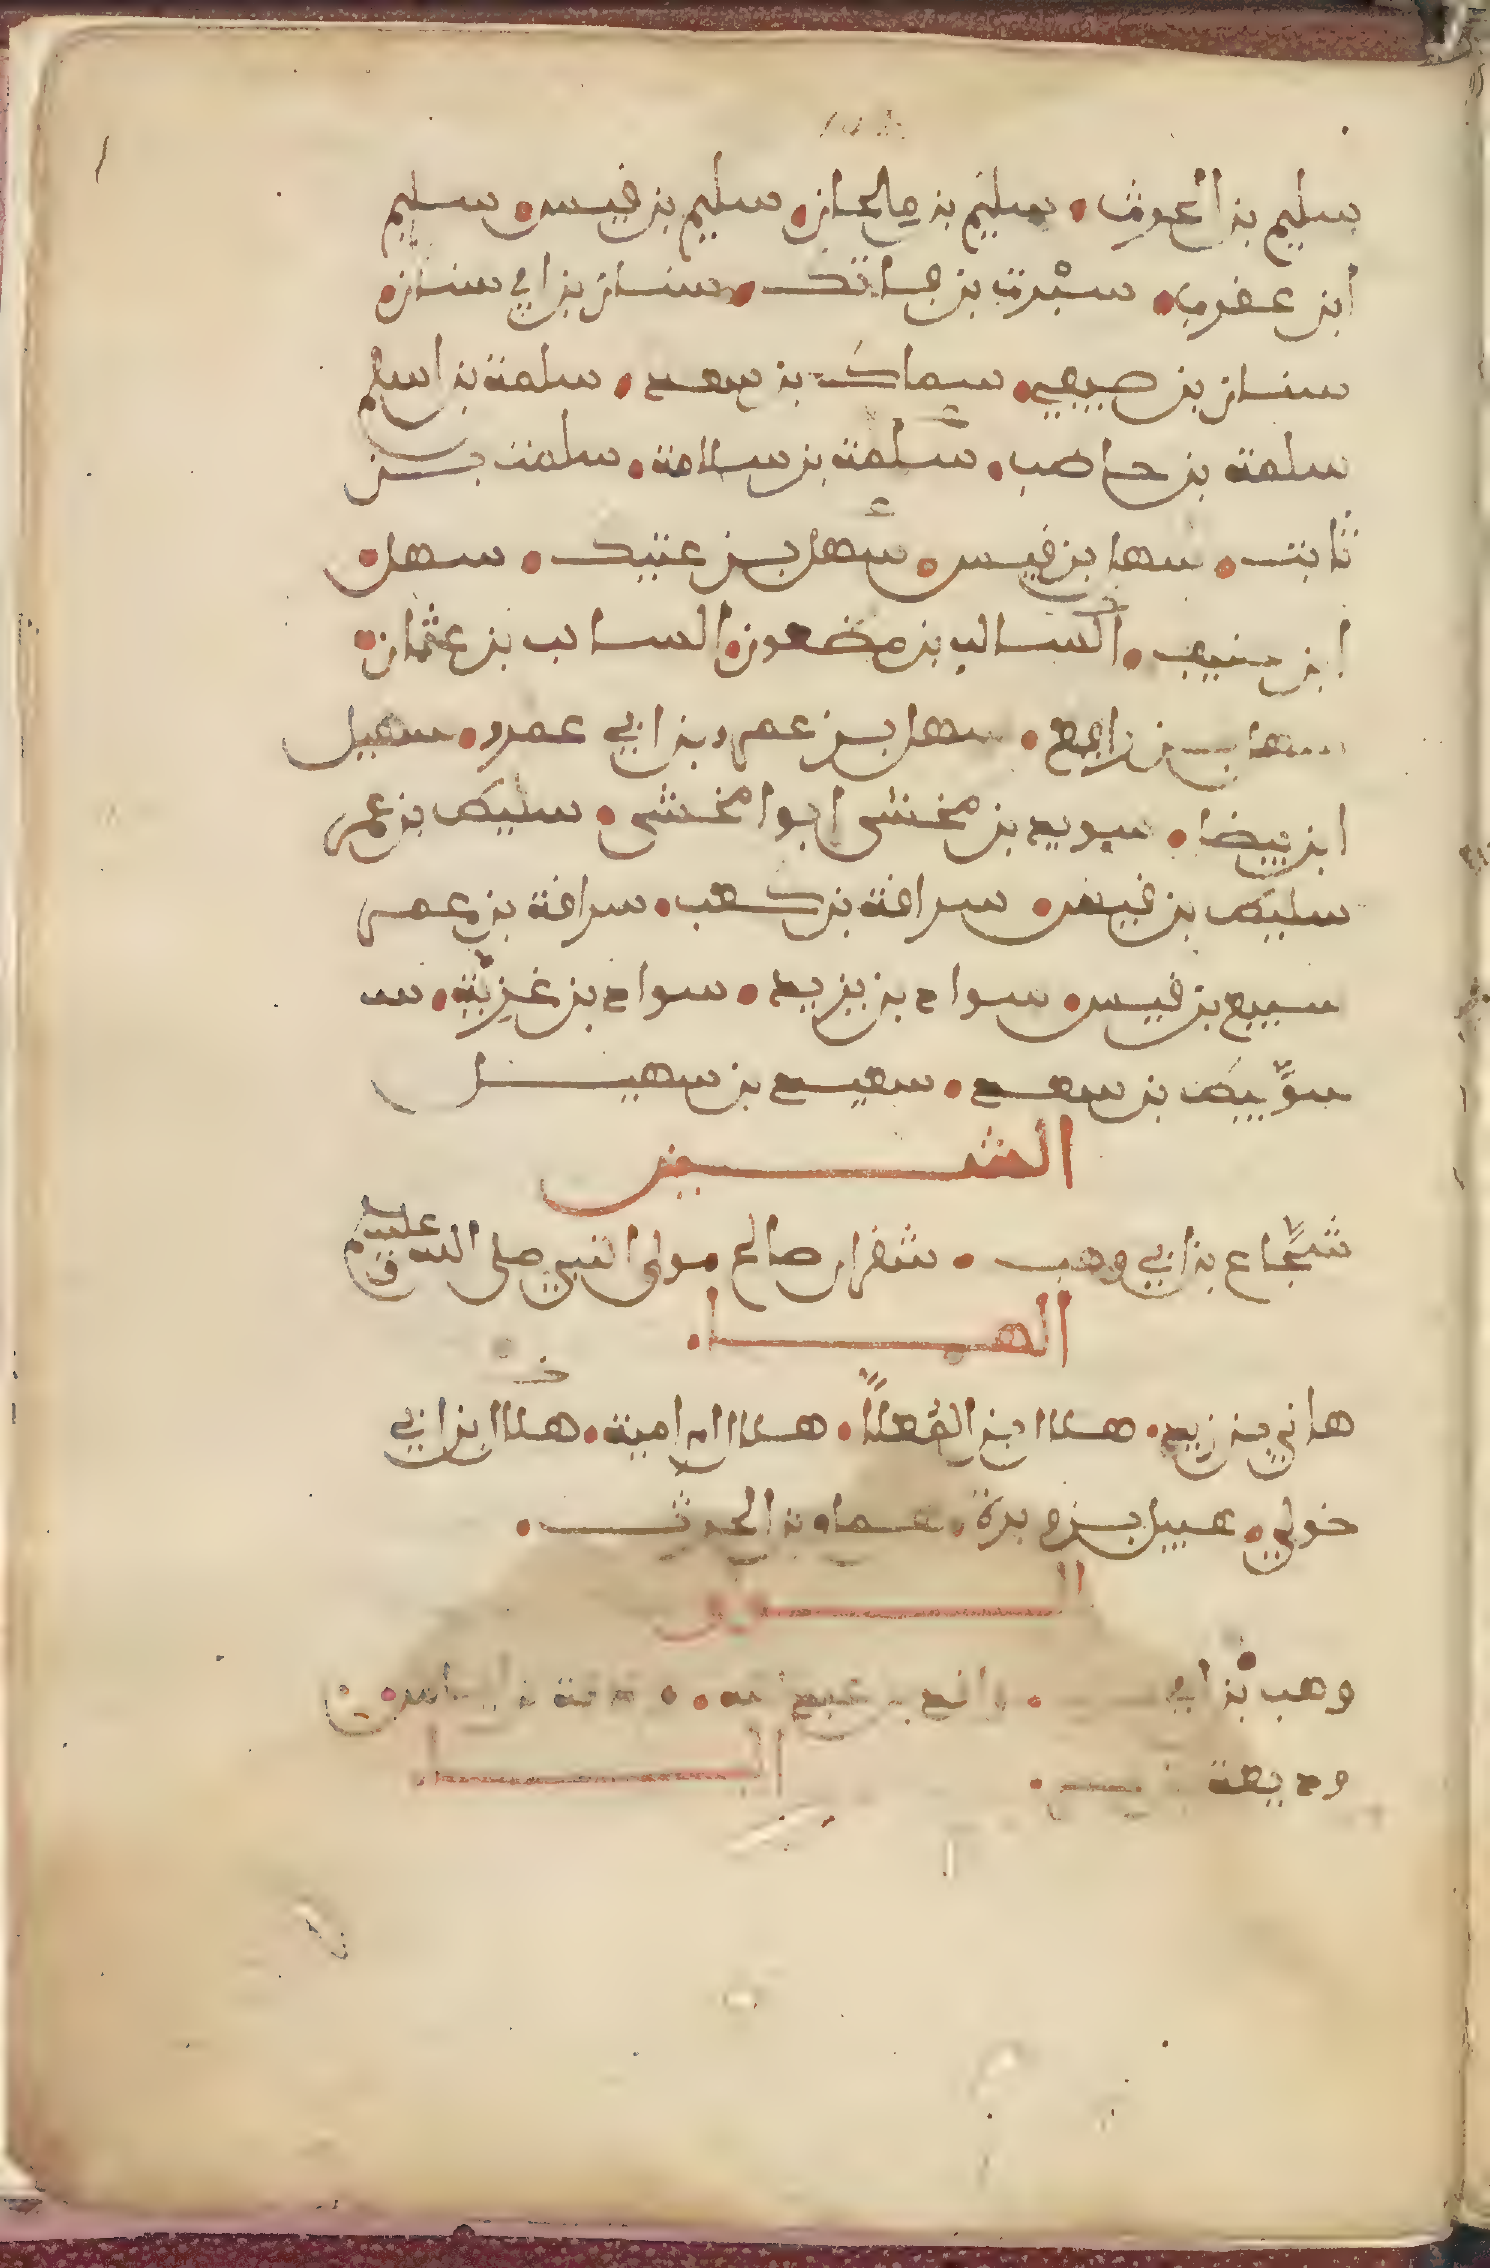 سليم بن الحرث • سليم بن ملحان • سليم بن قيس • سليم
ابن عمرو • سبرة بن فاتك • سنان بن ابي سنان •
سنان بن صيفي • سماك بن سعد • سلمة بن اسلم
سلمة بن حاطب • سلمة بن سلامة • سلمة بن
ثابت • سهل بن قيس • سهل بن عتيك • سهل
ابن حنيف • السائب بن مظعون • السائب بن عثمان •
سهل بن رافع • سهل بن عمرو بن ابي عمرو • سهيل
ابن بيضا • سويد بن مخشي ابوا مخشي • سليط بن عمر
سليط بن قيس • سراقة بن كعب • سراقة بن عمر
سبيع بن قيس • سواد بن يزيد • سواد بن غزية • سـ
سويبط بن سعد • سعيد بن سهيل
الشين
شجاع بن ابي وهب • شقران صالح مولى النبي صلى الله عليه وم
الهاء
هاني بن زيد • هلال بن المعلا • هلال ابن امية • هلال ابن ابي
خولي • هبيل بن وبرة • بن الحرث •
الواو
وهب بن ابي • • •
وديعة •
اليا